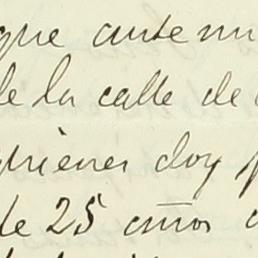 que ante mi
de la calle de
quienes doy
de 25 años